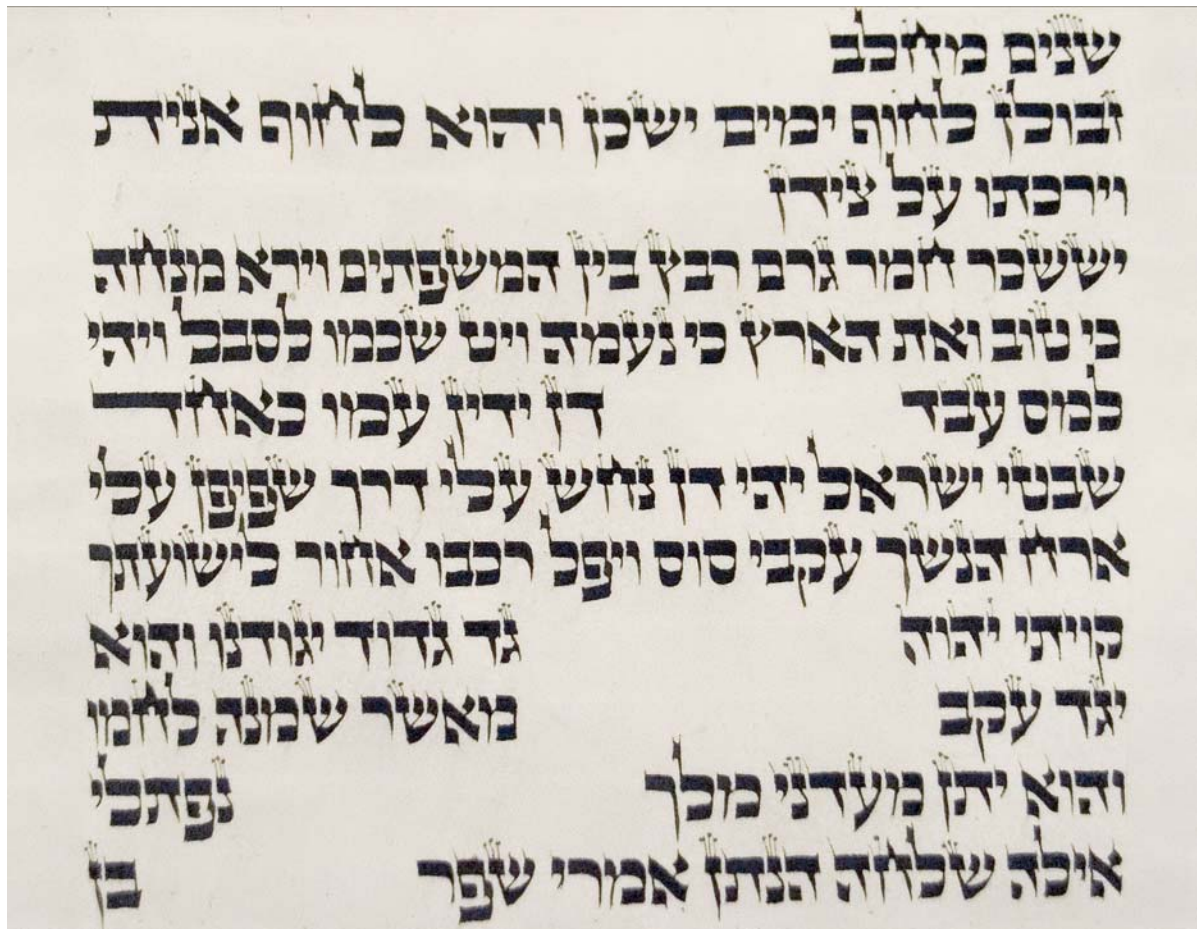 שנים מחלב
זבולן לחוף ימים ישכן והוא לחוף אנית
וירכתו על צידן
יששכר חמר גרם רבץ בין המשפתים וירא מנחה
כי טוב ואת הארץ כי נעמה ויט שכמו לסבל ויהי
למס עבד דן ידין עמו כאחד
שבטי ישראל יהי דן נחש עלי דרך שפיפן עלי
ארח הנשך עקבי סוס ויפל רכבו אחור לישועתך
קויתי יהוה גד גדוד יגודנו והוא
יגד עקב מאשר שמנה לחמו
והוא יתן מעדני מלך נפתלי
אילה שלחה הנתן אמרי שפר בן